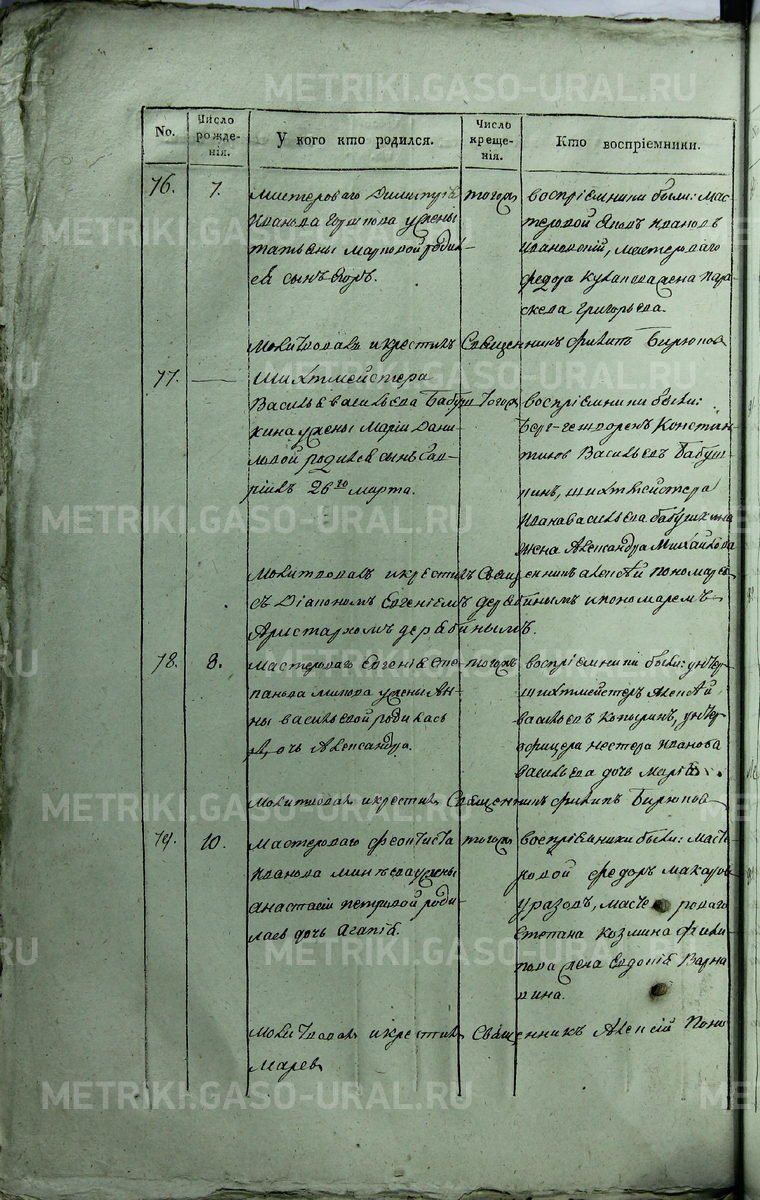 METRIKI.GASO-URAL.RU
No.
Число рожде-нія.
У кого кто родился.
Число креще-нія.
Кто воспріемники.
76.
7.
Мастероваго Димитрія
Иванова Горшкова у жены
татьяны Марковой родил-
ся сынъ Егоръ.
тогожъ
воспріемники были: Мас-
теровой Яковъ Ивановъ
мастероваго
федора жена Пара-
скева Григорьева.
Молитвовалъ и крестилъ Священникъ филипъ Бирюковъ
77.
Шихтмейстера
Василья васильева Бабуш-
кина у жены Маріи Дани-
ловой родился сынъ Гав-
ріилъ 26го марта.
тогожъ
воспріемники были:
Берг-гешворенъ Констан-
тинъ Васильевъ Бабуш-
кинъ, шихтмейстера
Ивана васильева бабушкина
жена Александра Михайлова
Молитвовалъ и крестилъ Священникъ алексѣй пономаревъ
съ Діакономъ Евгеніемъ дерябинымъ и пономаремъ
Аристархомъ дерябинымъ.
78.
8.
Мастероваго Евгенія Сте-
панова у жены Ан-
ны васильевой родилась
дочь Александра.
тогожъ
воспріемники были: унтеръ
шихтмейстеръ Алексѣй
васильевъ Копыринъ, унтеръ
офицера нестера Иванова
васильева дочь Марія.
Молитвовалъ и крестилъ Священникъ филипъ Бирюковъ
79.
10.
Мастероваго феоктиста
Иванова Минѣева у жены
анастасіи петровой роди-
лась дочь Агапія.
тогожъ
воспріемники были: Масте-
ровой федоръ макаровъ
Уразовъ, мастероваго
Степана козмина фили-
пова жена Евдокія Варна-
вина.
Молитвовалъ и крестилъ Священникъ Алексій Поно-
маревъ